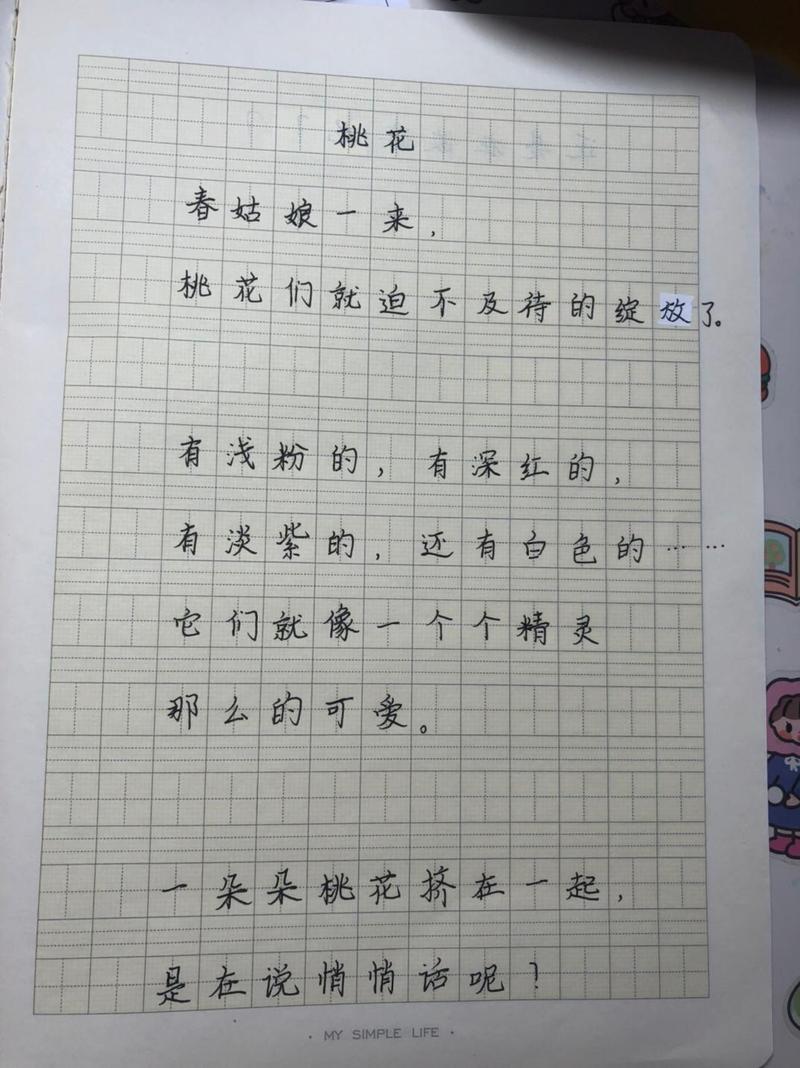 桃花
春姑娘一来,
桃花们就迫不及待的绽放了。
有浅粉的,有深红的,
有淡紫的,还有白色的……
它们就像一个个精灵
那么的可爱。
一朵朵桃花挤在一起,
是在说悄悄话呢?
· MY SIMPLE LIFE ·